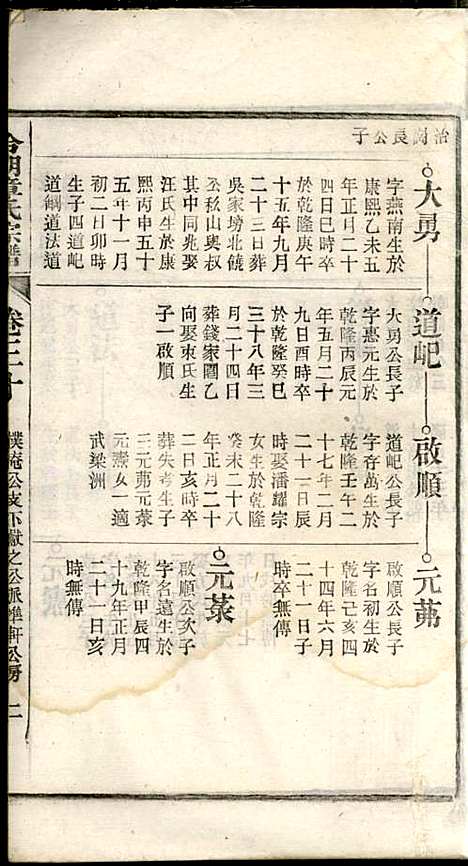 治嗣長公子
大勇
字燕南生於
康熙乙未五
年正月二十
四日巳時卒
於乾隆庚午
十五年九月
二十三日葬
吳家塝北饒
公秋山與叔
其中同兆娶
汪氏生於康
熙丙申五十
五年十一月
初二日卯時
生子四道屺
道嗣道法道
道屺
大勇公長子
字惠元生於
乾隆丙辰元
年五月二十
九日酉時卒
於乾隆癸巳
三十八年三
月二十四日
葬錢家園乙
向娶束氏生
子一啟順
啟順
道屺公長子
字啓萬生於
乾隆壬午二
十七年二月
二十一日辰
時娶潘耀宗
女生於乾隆
癸未二十八
年正月二十
二日亥時卒
葬失考生子
三元茀元菉
元燾女一適
武梁洲
元茀
啟順公長子
字名初生於
乾隆己亥四
十四年六月
二十一日子
時卒無傳
元菉
啟順公次子
字名遠生於
乾隆甲辰四
十九年正月
二十一日亥
時無傳
章氏宗譜
卷三十
樸庵公支下獻之公派
軒公房
二